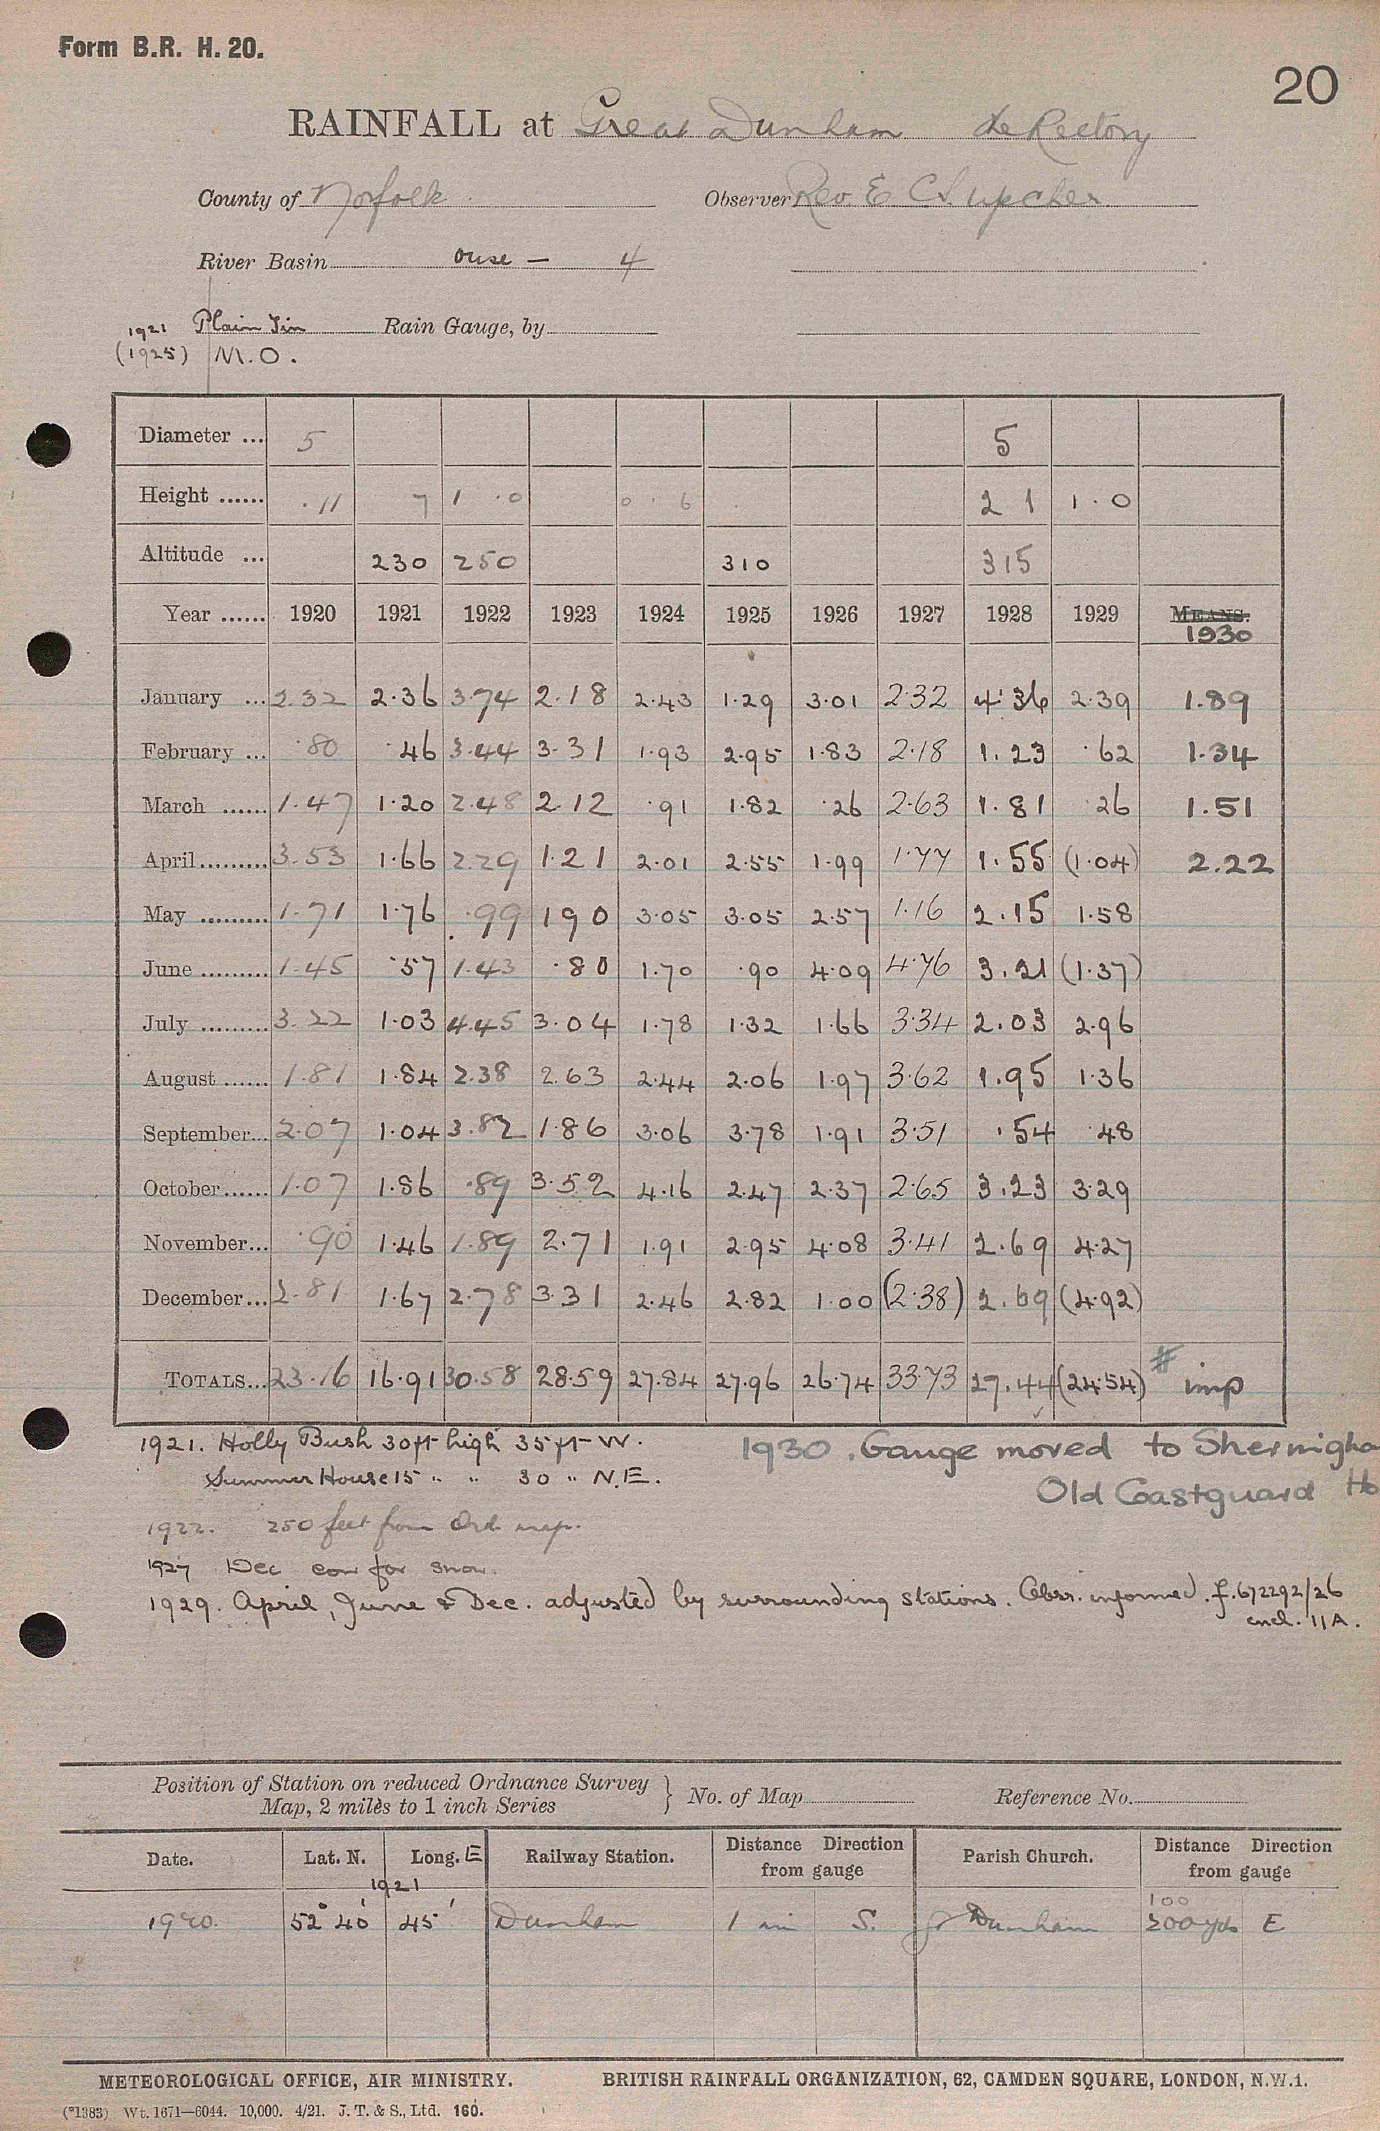 Form B.R. H. 20.
20
RAINFALL at Great Dunham The Rectory
County of Norfolk Observer Rev. E. C. S. Upcher
River Basin Ouse — 4
1921 Plain Tin Rain Gauge, by
(1925) M.O.
Diameter ... 5 5
Height ...... .11 7 1 .0 0 . 6 2 1 1 . 0
Altitude ... 230 250 310 315
Year ...... 1920 1921 1922 1923 1924 1925 1926 1927 1928 1929 MEANS.
1930
January ... 2.32 2.36 3.74 2.18 2.43 1.29 3.01 2.32 4.36 2.39 1.89
February ... .80 .46 3.44 3.31 1.93 2.95 1.83 2.18 1.23 .62 1.34
March ...... 1.47 1.20 2.48 2.12 .91 1.82 .26 2.63 1.81 .26 1.51
April ......... 3.53 1.66 2.29 1.21 2.01 2.55 1.99 1.77 1.55 (1.04) 2.22
May ......... 1.71 1.76 .99 1.90 3.05 3.05 2.57 1.16 2.15 1.58
June ......... 1.45 .57 1.43 .80 1.70 .90 4.09 4.76 3.21 (1.37)
July ......... 3.22 1.03 4.45 3.04 1.78 1.32 1.66 3.34 2.03 2.96
August ...... 1.81 1.84 2.38 2.63 2.44 2.06 1.97 3.62 1.95 1.36
September... 2.07 1.04 3.82 1.86 3.06 3.78 1.91 3.51 .54 .48
October ...... 1.07 1.86 .89 3.52 4.16 2.47 2.37 2.65 3.23 3.29
November... .90 1.46 1.89 2.71 1.91 2.95 4.08 3.41 2.69 4.27
December... 2.81 1.67 2.78 3.31 2.46 2.82 1.00 (2.38) 2.69 (4.92)
TOTALS... 23.16 16.91 30.58 28.59 27.84 27.96 26.74 33.73 27.44 (24.54) # imp
1921. Holly Bush 30ft high 35ft W.
Summer House 15 " " 30 " N.E.
1930. Gauge moved to Sherringha
Old Coastguard Ho
1922. 250 feet from Ord. map.
1927 Dec corr for snow.
1929. April, June & Dec. adjusted by surrounding stations. Obsr. informed. f.672292/26
encl. 11A.
Position of Station on reduced Ordnance Survey
Map, 2 miles to 1 inch Series } No. of Map Reference No.
Date. Lat. N. Long. E Railway Station. Distance Direction from gauge Parish Church. Distance Direction from gauge
1921
100
1920. 52° 40' 45' Dunham 1 mi S. Gt Dunham 200 yds E
METEOROLOGICAL OFFICE, AIR MINISTRY. BRITISH RAINFALL ORGANIZATION, 62, CAMDEN SQUARE, LONDON, N.W.1.
(*1383) Wt. 1671—6044. 10,000. 4/21. J. T. & S., Ltd. 160.